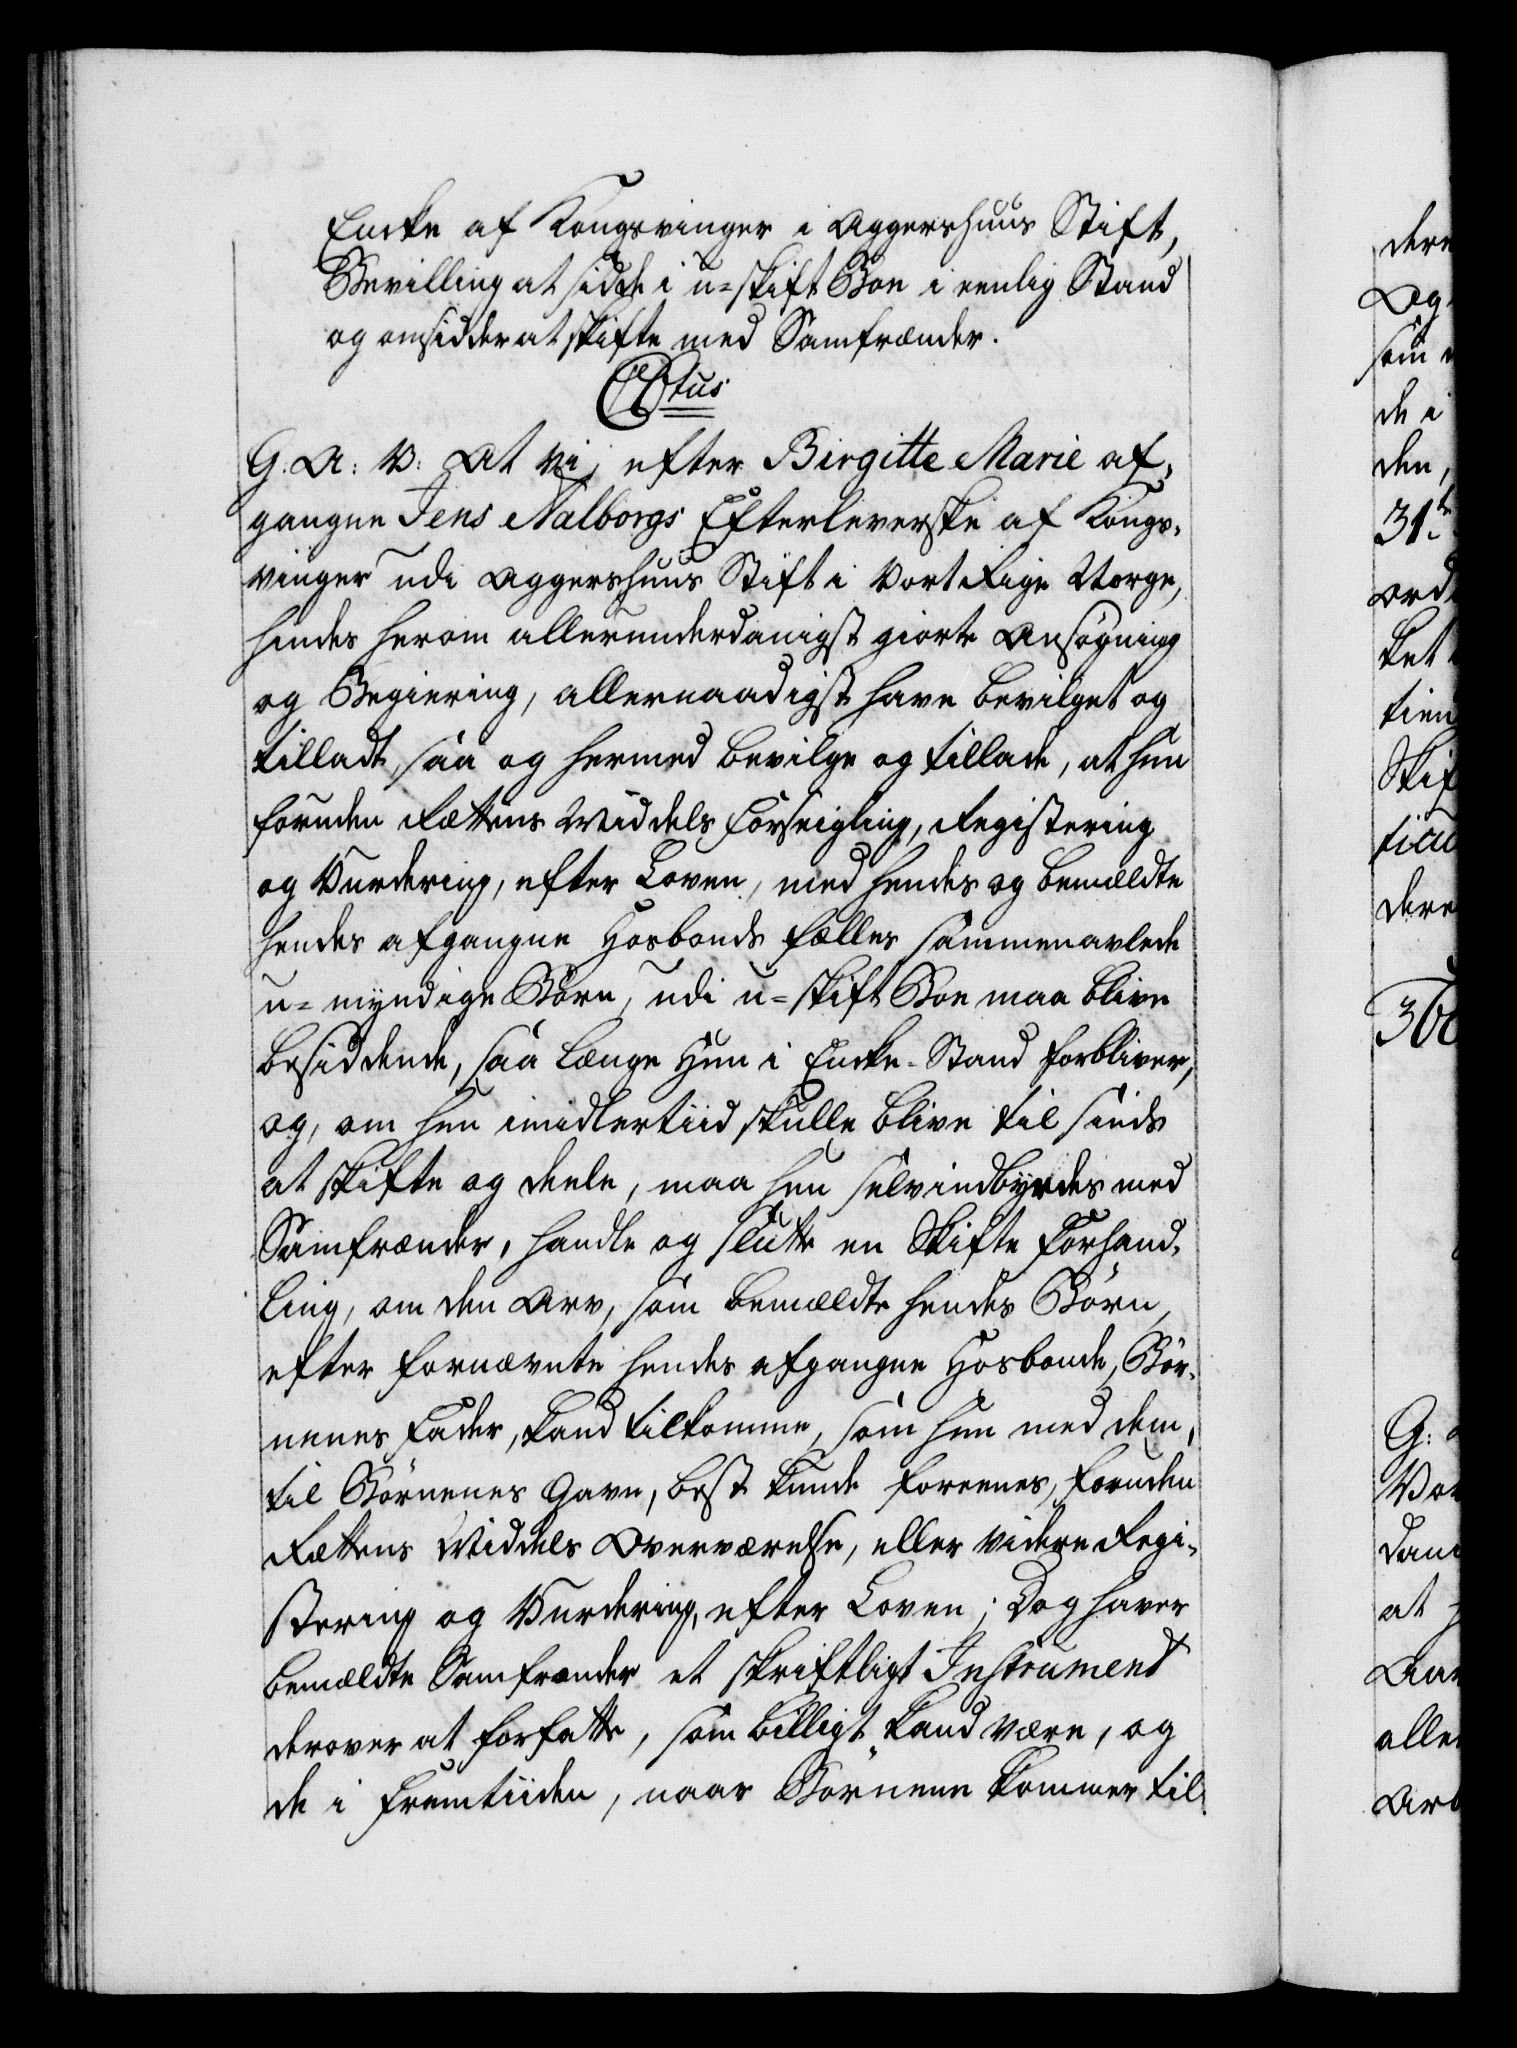 Encke af Kongsvinger i Aggershuus Stift,
Bevilling at sidde i u-skift Boe i eenlig Stand
og omsidder at skifte med Samfrænder.
G. A: V: At Vi, efter Birgitte Marie af-
gangne Jens Aalborgs Efterleverske af Kongs-
vinger udi Aggershuus Stift i Vort Rige Norge,
hendes herom allerunderdanigst giorte Ansøgning
og Begiering, allernaadigst have bevilget og
tilladt, saa og hermed bevilge og tillade, at hun
foruden Rettens Middels Forseigling, Registering
og Vurdering, efter Loven, med hendes og bemældte
hendes afgangne Hosbonds fælles sammenavlede
u-myndige Børn, udi u-skift Boe maa blive
besiddende, saa længe Hun i Encke-Stand forbliver,
og, om hun imidlertiid skulle blive til sinds
at skifte og deele, maa hun selv indbyrdes med
Samfrænder, handle og slutte en Skifte Forhand-
ling, om den Arv, som bemældte hendes Børn,
efter fornævnte hendes afgangne Hosbonde, Bør-
nenes Fader, kand tilkomme, som hun med dem,
til Børnenes Gavn, best kunde foreenes, foruden
Rettens Middels Overværelse, eller videre Regi-
stering og Vurdering, efter Loven; Dog haver
bemældte Samfrænder et skriftligt Instrument
derover at forfatte, som billigt kand være, og
de i Fremtiiden, naar Børnene kommer til
dere
Og
som
de i
den,
31te
ket
tien
Skif
dere
G:
Vor
at
alle